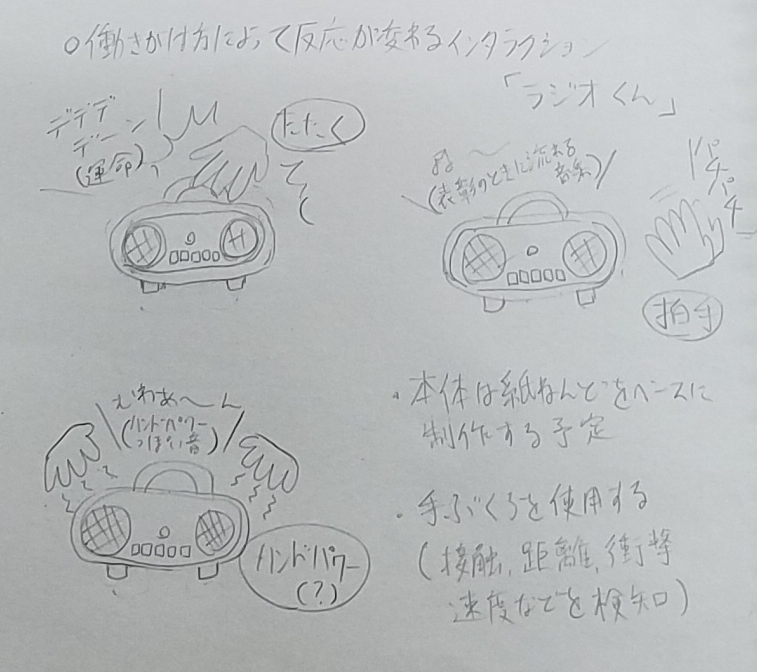 ○働きかけ方によって反応が変わるインタラクション
「ラジオくん」
デデデ
デーン
(運命)
たたく
(表彰のときに流れる
音楽)
パ
チ
パ
チ
拍手
むわぁ〜ん
(ハンドパワー
っぽい音)
ハンドパワー
(?)
・本体は紙ねんどをベースに
制作する予定
・手ぶくろを使用する
(接触、距離、衝撃
速度などを検知)